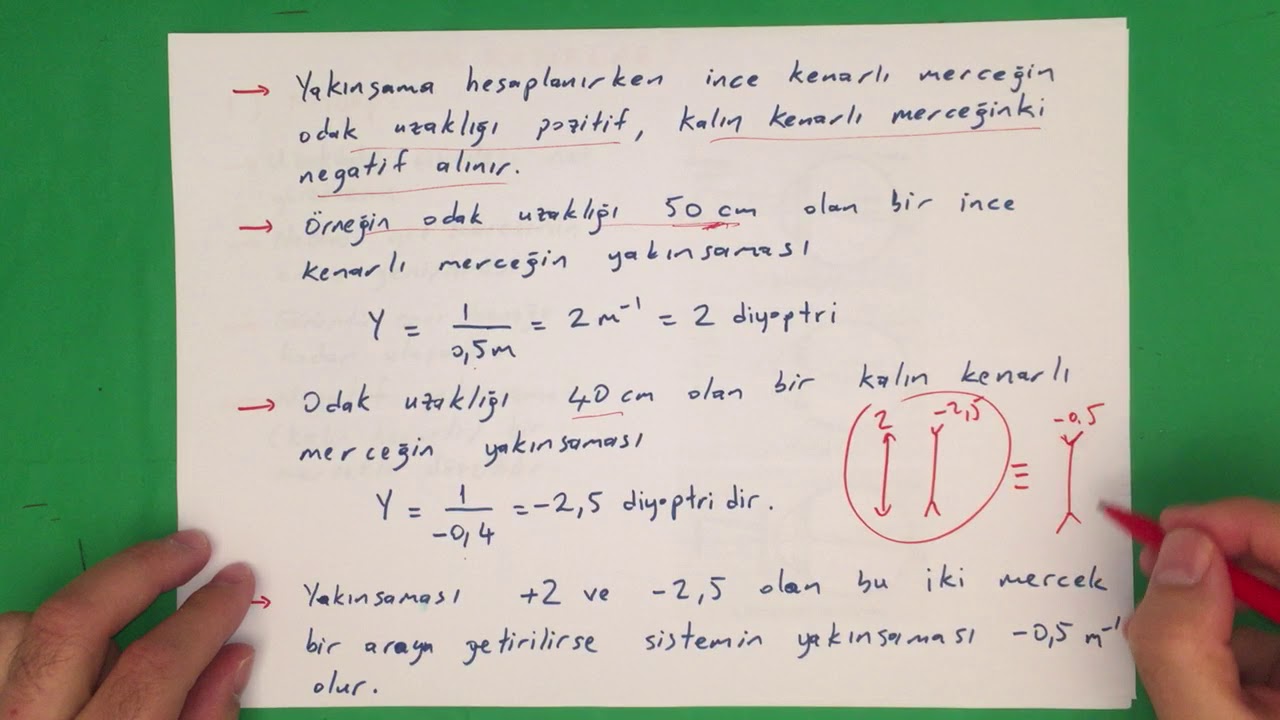 → Yakınsama hesaplanırken ince kenarlı merceğin
odak uzaklığı pozitif, kalın kenarlı merceğinki
negatif alınır.
→ Örneğin odak uzaklığı 50 cm olan bir ince
kenarlı merceğin yakınsaması
Y = 1/0,5m = 2 m⁻¹ = 2 diyoptri
→ Odak uzaklığı 40 cm olan bir kalın kenarlı
merceğin yakınsaması
2 -2,5 ≡ -0,5
Y = 1/-0,4 = -2,5 diyoptridir.
→ Yakınsaması +2 ve -2,5 olan bu iki mercek
bir araya getirilirse sistemin yakınsaması -0,5 m⁻¹
olur.